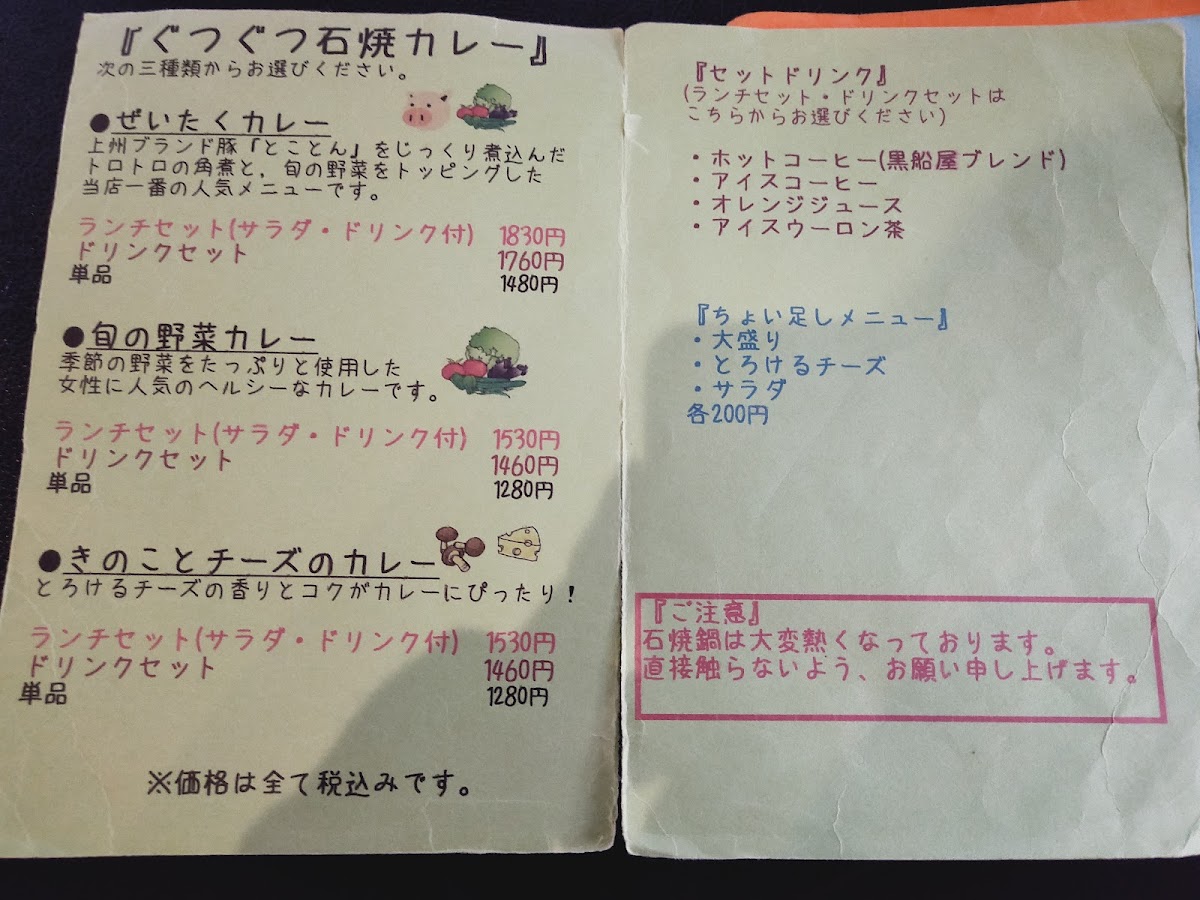 『ぐつぐつ石焼カレー』
次の三種類からお選びください。
●ぜいたくカレー
上州ブランド豚『とことん』をじっくり煮込んだ
トロトロの角煮と、旬の野菜をトッピングした
当店一番の人気メニューです。
ランチセット(サラダ・ドリンク付) 1830円
ドリンクセット 1760円
単品 1480円
●旬の野菜カレー
季節の野菜をたっぷりと使用した
女性に人気のヘルシーなカレーです。
ランチセット(サラダ・ドリンク付) 1530円
ドリンクセット 1460円
単品 1280円
●きのことチーズのカレー
とろけるチーズの香りとコクがカレーにぴったり！
ランチセット(サラダ・ドリンク付) 1530円
ドリンクセット 1460円
単品 1280円
※価格は全て税込みです。
『セットドリンク』
(ランチセット・ドリンクセットは
こちらからお選びください)
・ホットコーヒー(黒船屋ブレンド)
・アイスコーヒー
・オレンジジュース
・アイスウーロン茶
『ちょい足しメニュー』
・大盛り
・とろけるチーズ
・サラダ
各200円
『ご注意』
石焼鍋は大変熱くなっております。
直接触らないよう、お願い申し上げます。